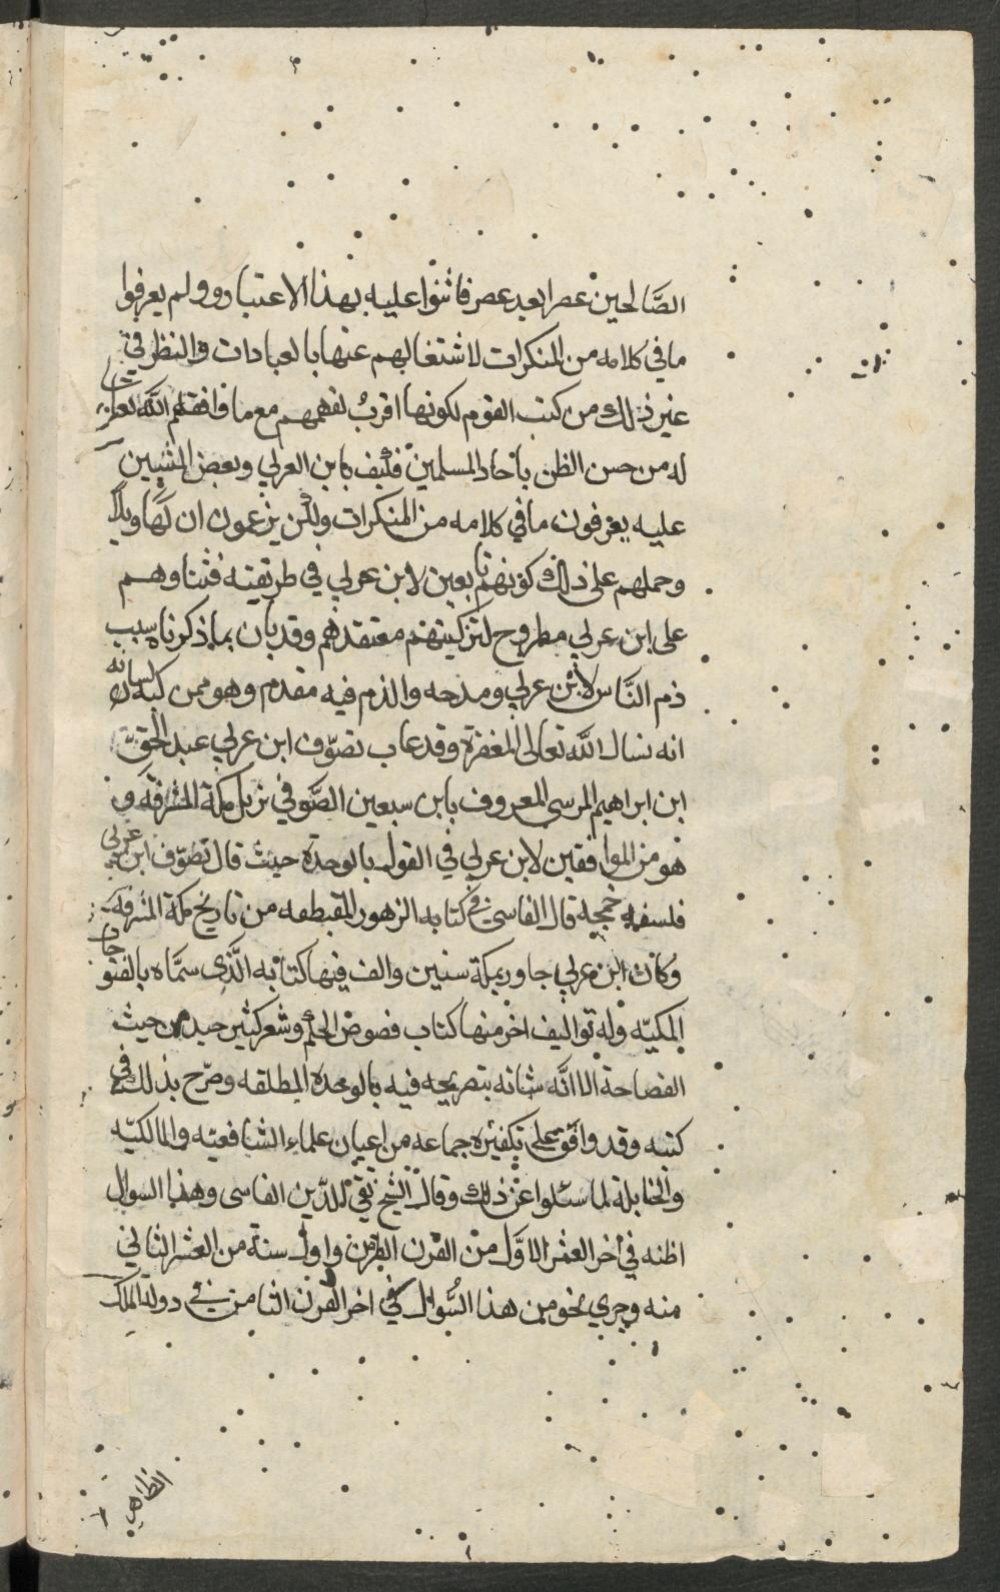 الصَّالحين عصرا بعد عصر فاثنوا عليه بهذا الاعتبار وولم يعرفوا
مافي كلامه من المنكرات لاشتغالهم عنها بالعبادات والنظر في
غير ذلك من كتب القوم لكونها اقربُ لفهمهم مع ما وفقهم اللّه تعالى
له من حسن الظن بآحاد المسلمين فكيف بابن العربي وبعض المثنيين
عليه يعرفون مافي كلامه من المنكرات ولكن يزعمون ان لها تاويلاً
وحملهم على ذلك كونهم تابعين لابن عربي في طريقته فثناوهم
على ابن عربي مطروح لتزكيتهم معتقدهم وقد بان بما ذكرناه سبب
ذم النَّاس لابن عربي ومدحه والذم فيه مقدم وهو ممن كبه لسانه
انه نسال اللّه تعالى المغفرة وقد عاب تصوّف ابن عربي عبد الحق
ابن ابراهيم المرسي المعروف بابن سبعين الصَّوفي نزيل مكة المشرفة و
هو من الموافقين لابن عربي في القول بالوحدة حيث قال تصوّف ابن عربي
فلسفه خمجه قال الفاسي في كتابه الزهور المقتطفه من تاريخ مكة المشرفه
وكان ابن عربي جاور بمكة سنين والف فيها كتابه الَّذي سمَّاه بالفتوحات
المكيّه وله تواليف اخر منها كتاب فصوص الحكم وشعر كثير جيد من حيث
الفصاحة الا انَّه شانه بتصريحه فيه بالوحدة المطلقه وصرّح بذلك في
كتبه وقد وافق على تكفيره جماعه من اعيان علماء الشافعيّه والمالكيّه
والحنابلة لما سئلوا عن ذلك وقال الشيخ تقي الدّين الفاسى وهذا السوال
اظنه في آخر العشر الاوَّل من القرن الثامن واول سنة من العشر الثاني
منه وجري نحو من هذا السُّوال في اخر القرن الثامن في دولة الملك
الظاهر